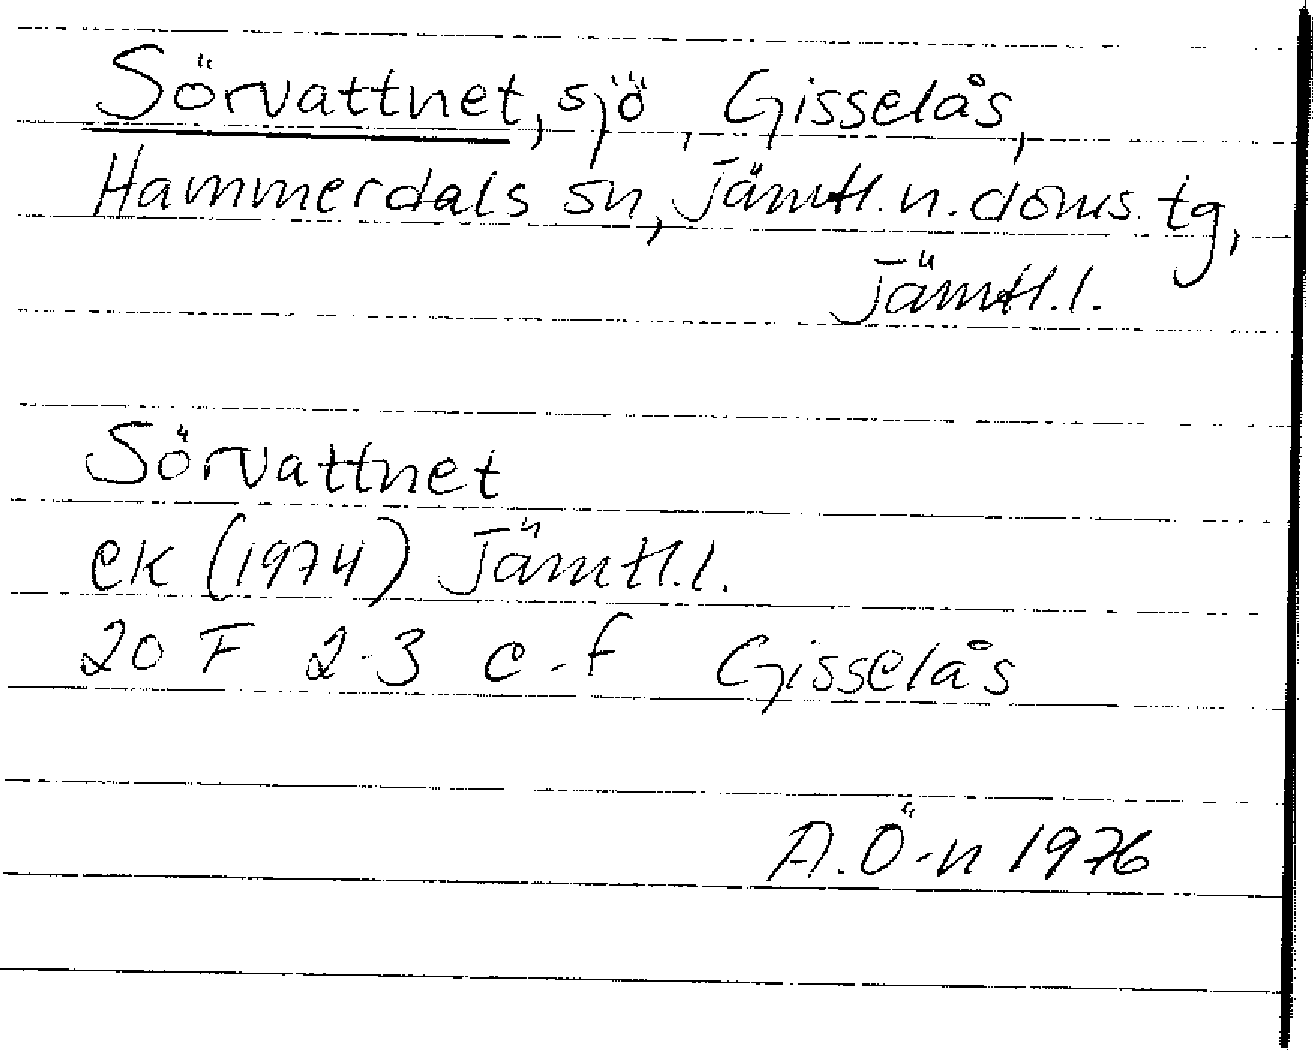 Sörvattnet, sjö, Gisselås,
Hammerdals sn, Jämtl. n. doms. tg,
Jämtl. l.
Sörvattnet
ek (1974) Jämtl. l.
20 F 2-3 c-f Gisselås
A. Ö-n 1976